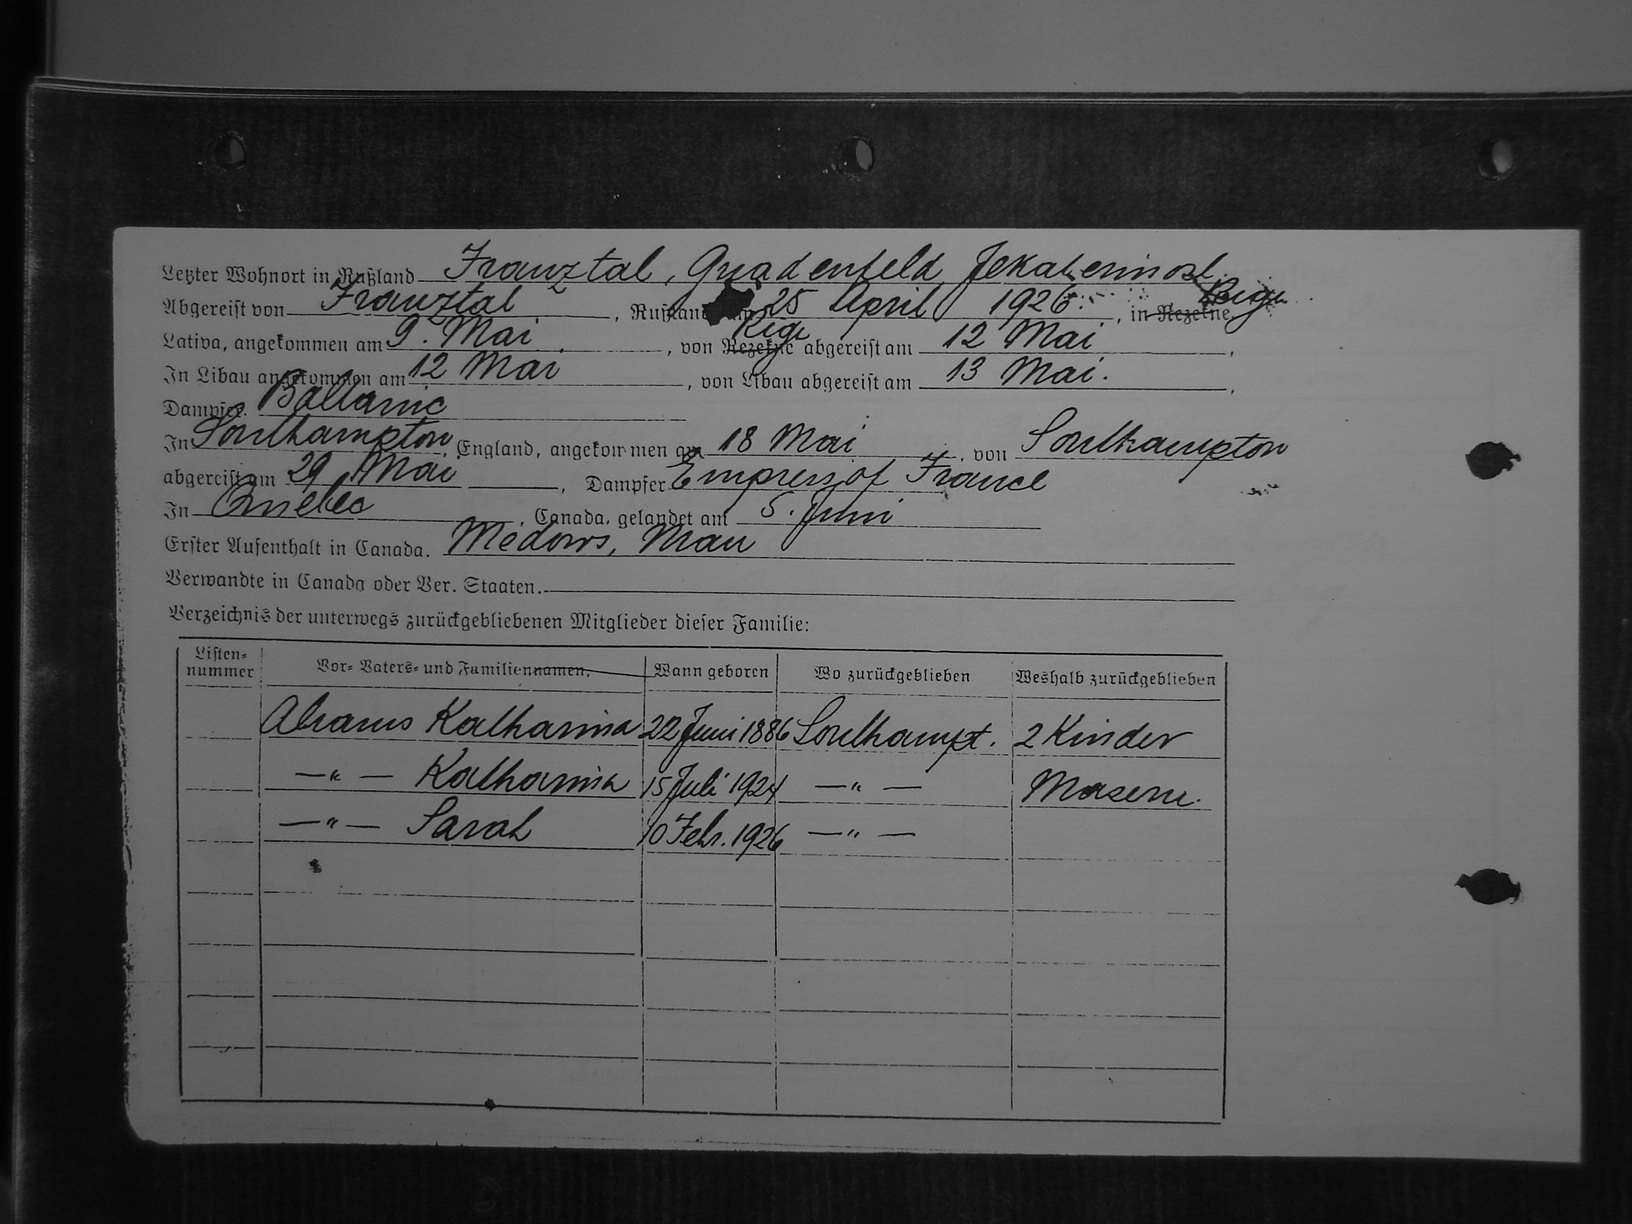 Letzter Wohnort in Rußland Franztal, Gnadenfeld Jekaterinosl.
Abgereist von Franztal, Rußland am 25 April 1926, in Rezekne, Riga
Lativa, angekommen am 9. Mai, von Rezekne Riga abgereist am 12 Mai,
In Libau angekommen am 12 Mai, von Libau abgereist am 13 Mai.,
Dampfer. Baltanic
In Southampton, England, angekommen am 18 Mai, von Southampton
abgereist am 29 Mai, Dampfer Empress of France
In Quebec, Canada, gelandet am 5. Juni
Erster Aufenthalt in Canada. Medows, Man
Verwandte in Canada oder Ver. Staaten.
Verzeichnis der unterwegs zurückgebliebenen Mitglieder dieser Familie:
Listen-nummer Vor- Vaters- und Familiennamen. Wann geboren Wo zurückgeblieben Weshalb zurückgeblieben
Abrams Katharina 22 Juni 1886 Southampt. 2 Kinder
—„— Katharina 15 Juli 1924 —„— Masern.
—„— Sarah 10 Febr. 1926 —„—